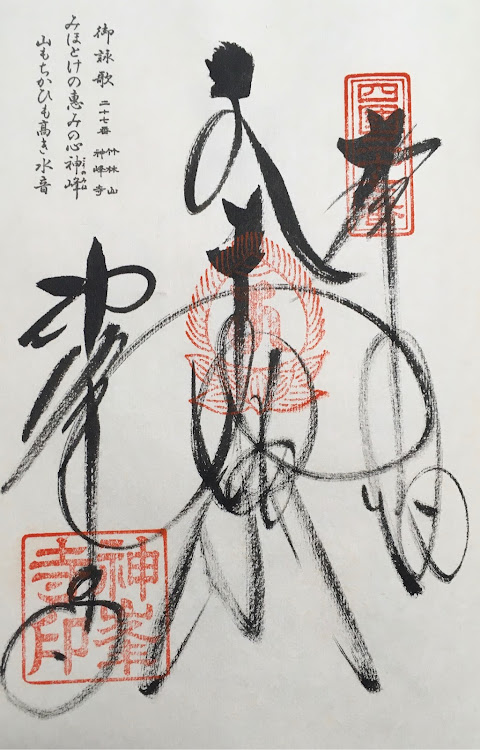 御詠歌 二十七番 竹林山 神峰寺
みほとけの恵みの心神峰
山もちかひも高き水音
奉納
神峯寺
神峯寺印